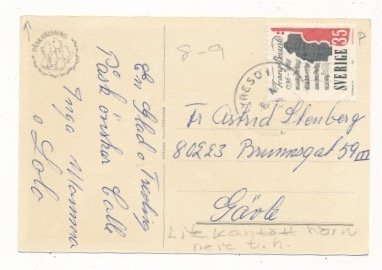 En Glad o Trevlig
Påsk önskar Calle
Inga Mamma
o Lolo
8-9
SVERIGE 35
Fr Astrid Stenberg
80223 Brunnsgat 59 III
Gävle
Lite kantstött hörn
nere t.h.